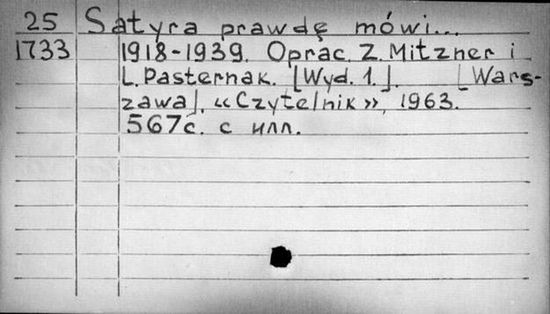 25 Satyra prawdę mówi...
1733 1918-1939. Oprac. Z. Mitzner i
L. Pasternak. [Wyd. 1.]. [Wars-
zawa], «Czytelnik», 1963.
567с. с илл.